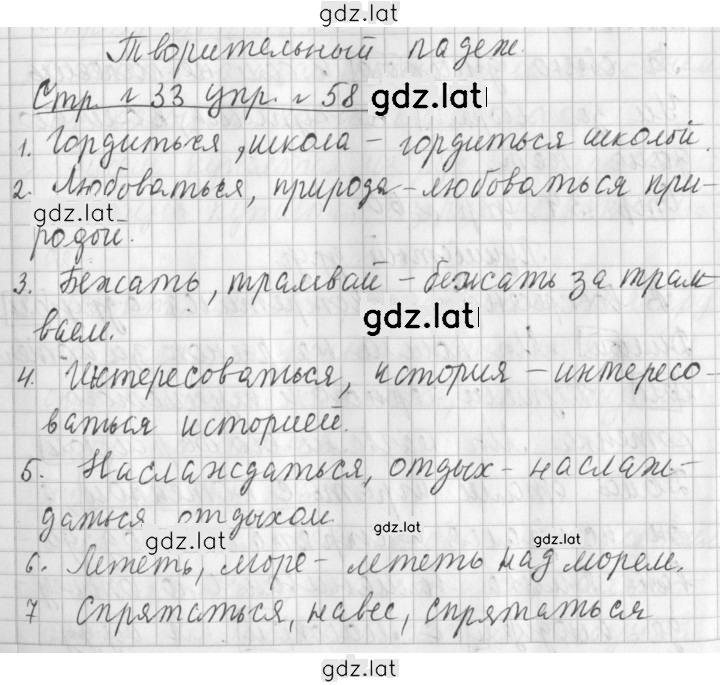 gdz.lat
Творительный падеж.
Стр. № 33 упр. № 58 gdz.lat
1. Гордиться, школа – гордиться школой.
2. Любоваться, природа – любоваться при-
gdz.lat
родой.
3. Бежать, трамвай – бежать за трам-
ваем.
gdz.lat
4. Интересоваться, история – интересо-
ваться историей.
5. Наслаждаться, отдых – наслаж-
даться отдыхом
gdz.lat
gdz.lat
gdz.lat
6. Лететь, море – лететь над морем.
7 Спрятаться, навес, спрятаться
gdz.lat